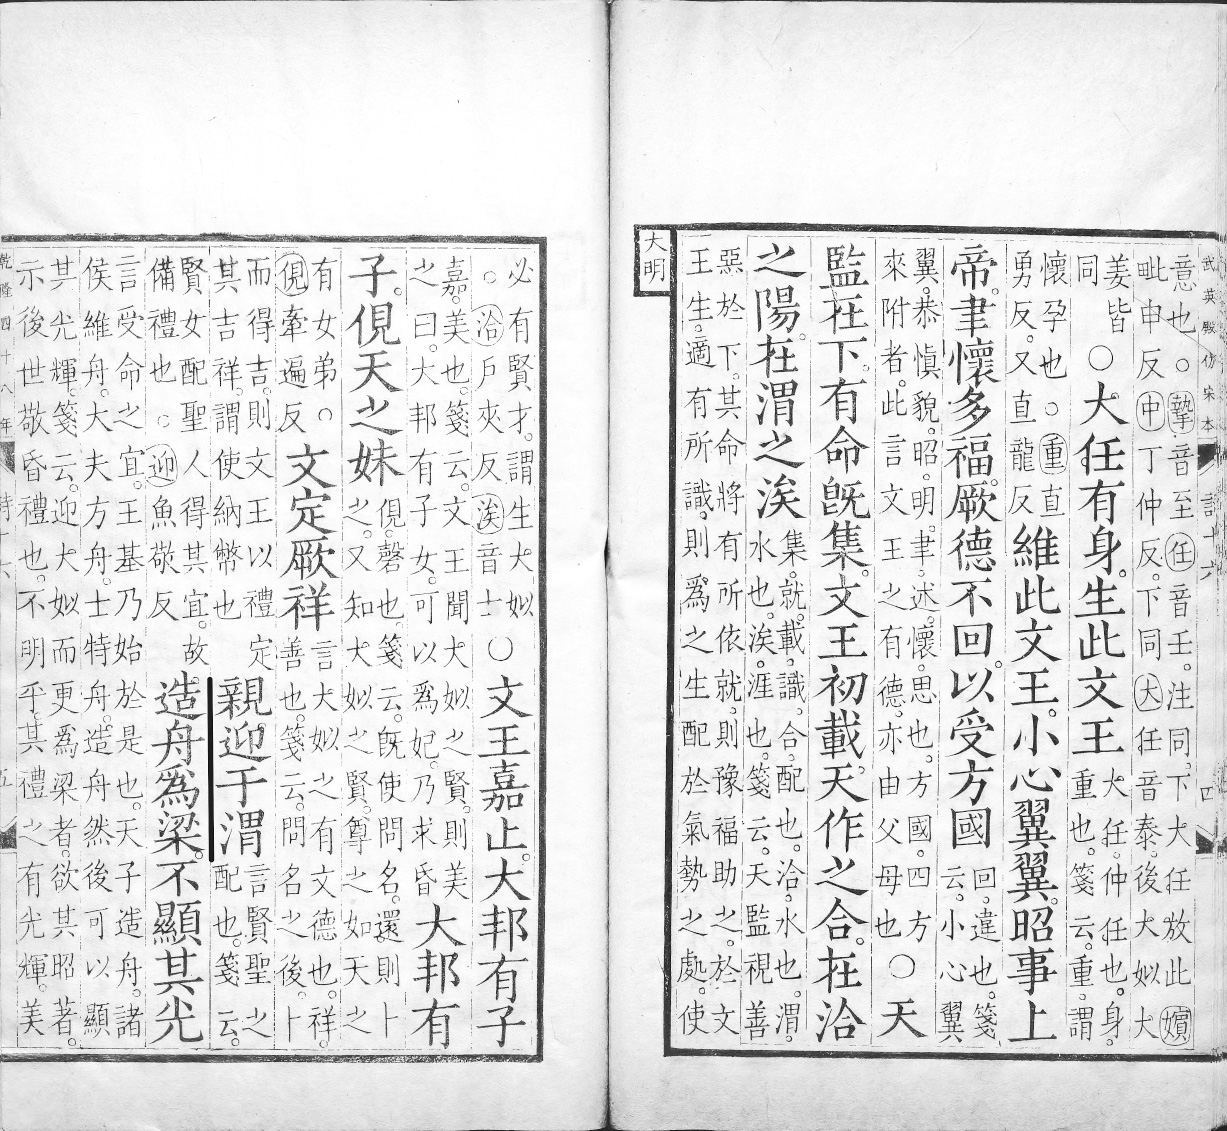 武英殿仿宋本 詩十六 四
意也。○摯音至任音壬。注同。下大任放此嬪
毗申反中丁仲反。下同大任音泰。後大姒大
姜皆
同
○大任有身。生此文王
大任。仲任也。身。
重也。箋云。重。謂
懷孕也○重直
勇反。又直龍反
維此文王。小心翼翼。昭事上
帝。聿懷多福。厥德不回。以受方國
回。違也。箋
云。小心翼
翼。恭愼貌。昭。明。聿。述。懷。思也。方國。四方
來附者。此言文王之有德。亦由父母也
○天
監在下。有命旣集。文王初載。天作之合。在洽
之陽。在渭之涘
集。就。載。識。合。配也。洽。水也。渭。
水也。涘。涯也。箋云。天監視善
惡於下。其命將有所依就。則豫福助之。於文
王生。適有所識。則爲之生配於氣勢之處。使
大明
必有賢才。謂生大姒
○洽戶夾反涘音士
○文王嘉止。大邦有子
嘉。美也。箋云。文王聞大姒之賢。則美
之曰。大邦有子女。可以爲妃。乃求昏
大邦有
子。俔天之妹
俔。磬也。箋云。旣使問名。還則卜
之。又知大姒之賢。尊之如天之
有女弟○
俔牽遍反
文定厥祥
言大姒之有文德也。祥。
善也。箋云。問名之後。卜
而得吉。則文王以禮定
其吉祥。謂使納幣也
親迎于渭
言賢聖之
配也。箋云。
賢女配聖人得其宜。故
備禮也○迎魚敬反
造舟爲梁。不顯其光
言受命之宜。王基乃始於是也。天子造舟。諸
侯維舟。大夫方舟。士特舟。造舟然後可以顯
其光輝。箋云。迎大姒而更爲梁者。欲其昭著。
示後世敬昏禮也。不明乎。其禮之有光輝。美
乾隆四十八年 詩十六 五